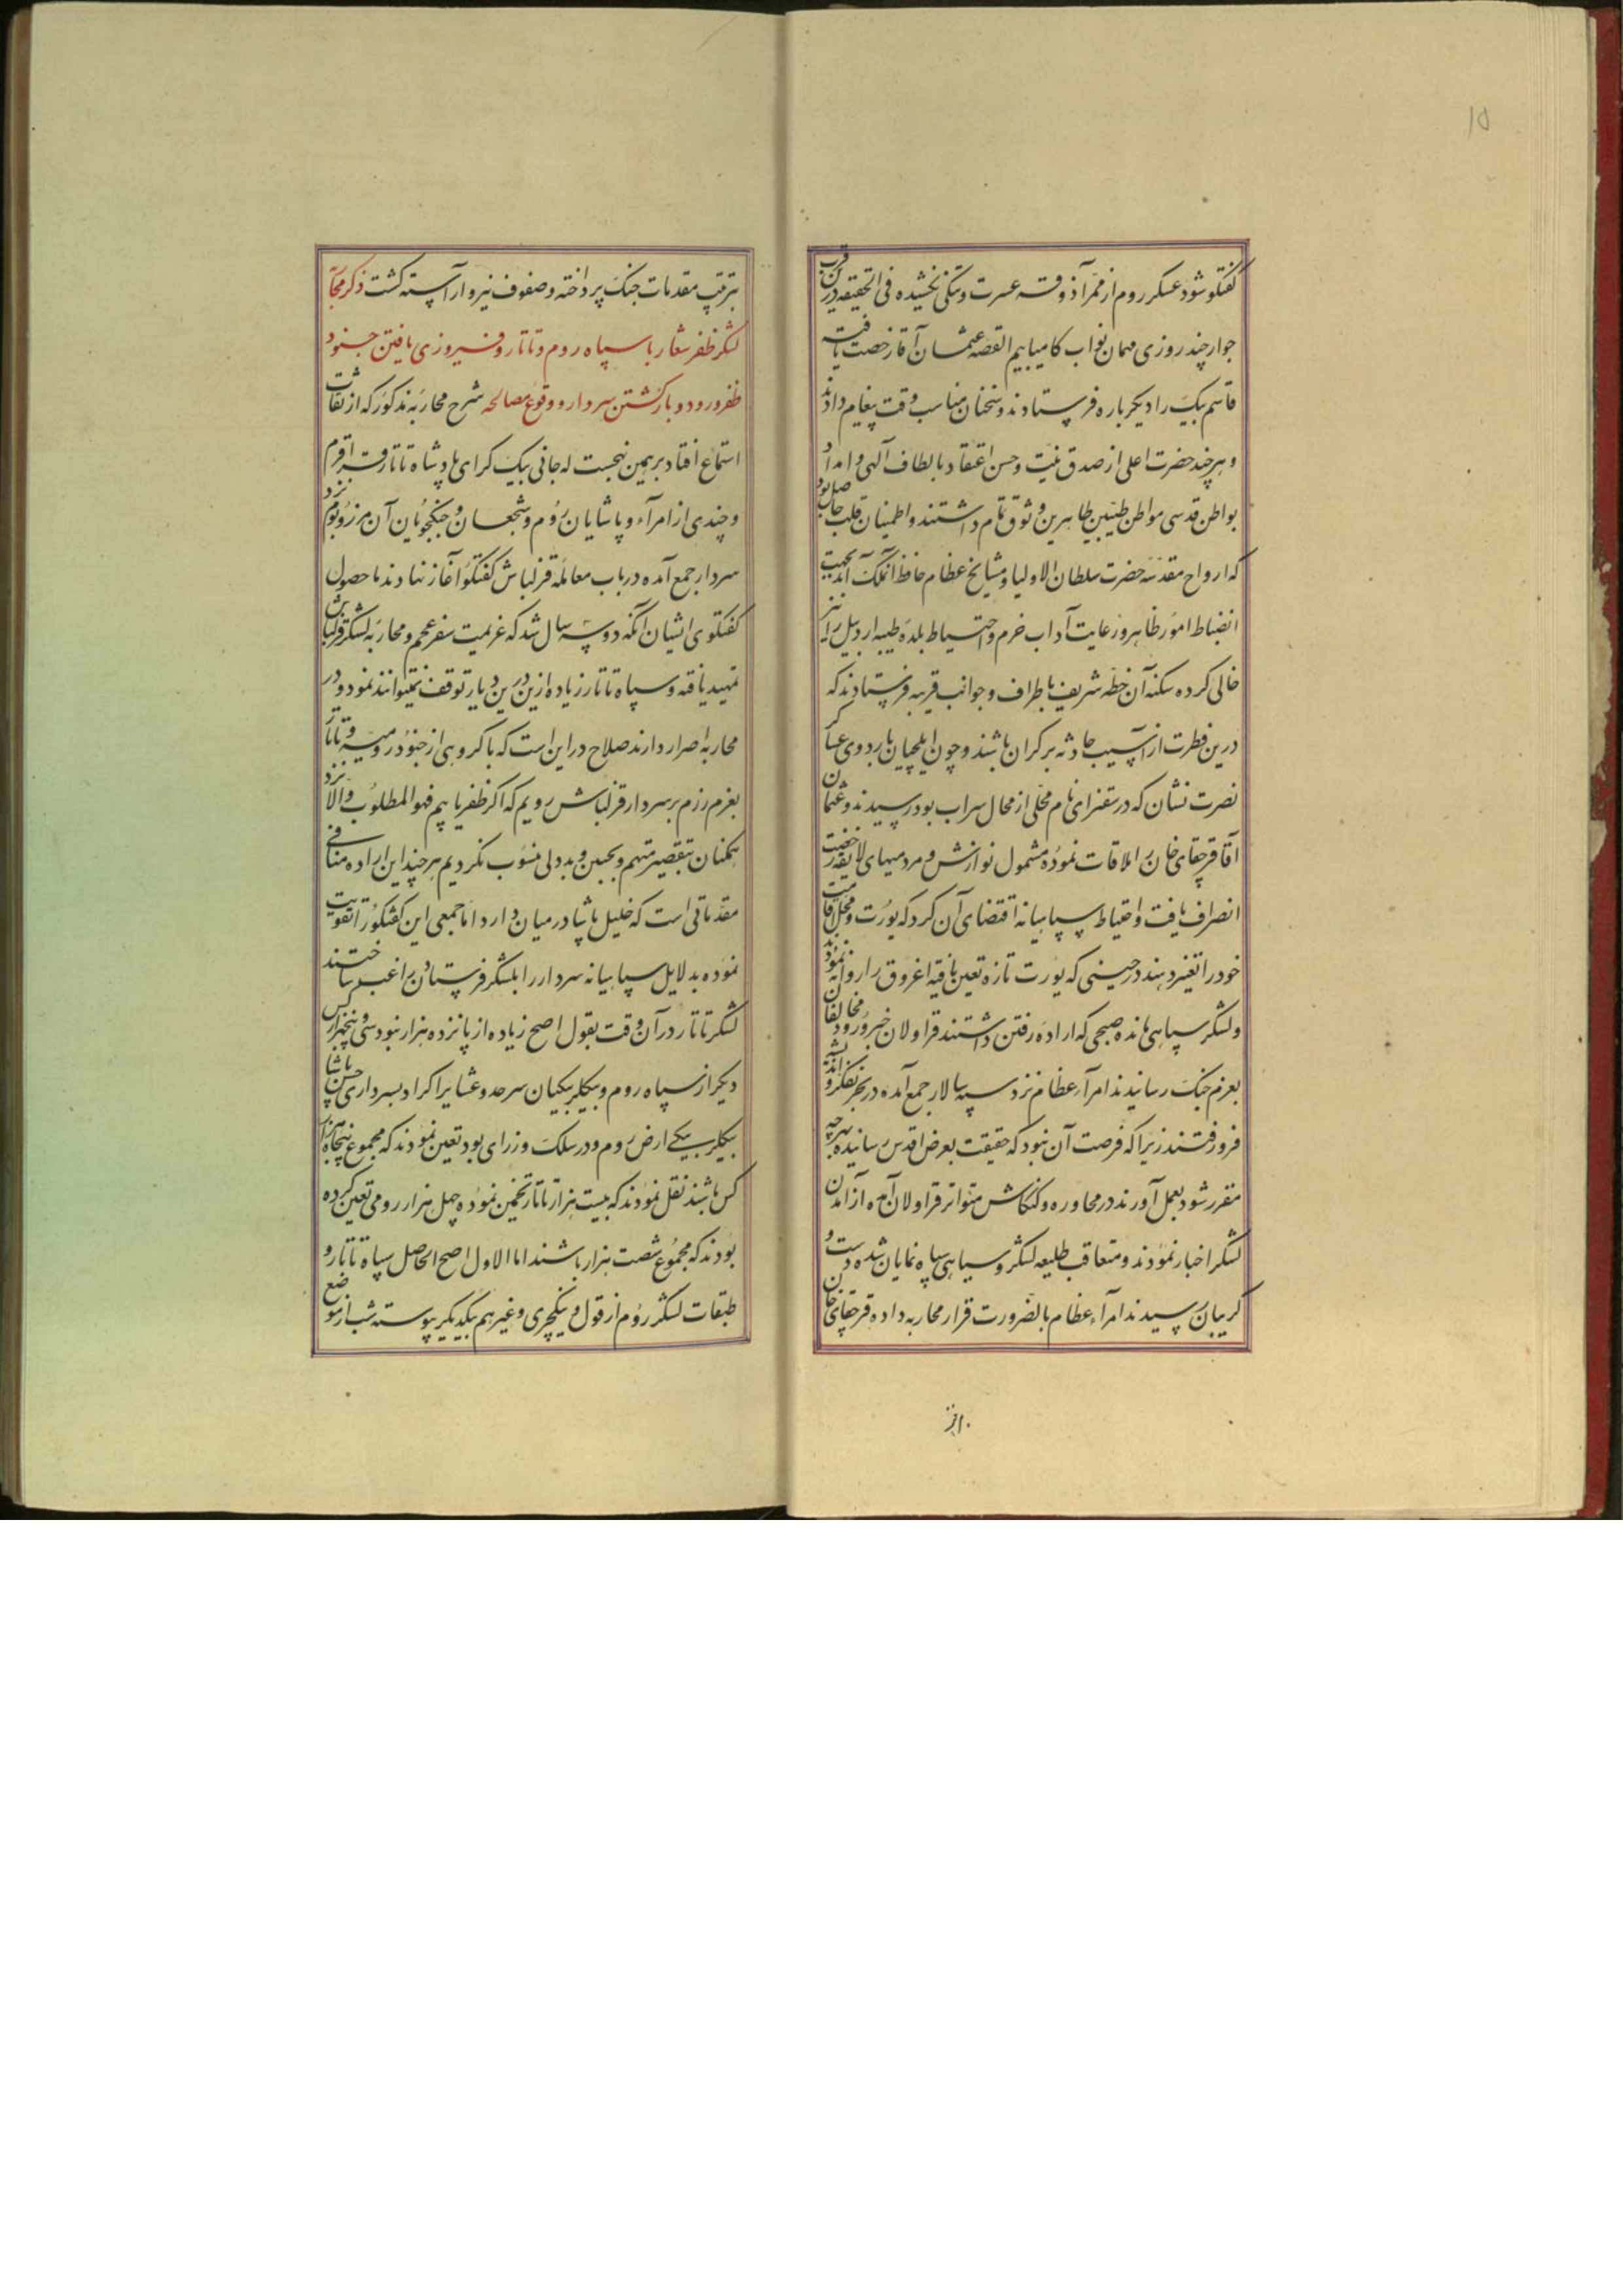 ۱۵
گفتگو شود عسکر روم از ممرآذوقه عسرت و تنکی نخشیده فی الحقیقه درین قرب
جوار چند روزی مهمان نواب کامیابیم القصه عثمان آقا رخصت یافته
قاسم بیک را دیکرباره فرستادند و سخنان مناسب وقت پیغام دادند
و هر چند حضرت اعلی از صدق نیت و حسن اعتقاد بالطاف آلهی و امداد
بواطن قدسی مواطن طیبین طاهرین وثوق تمام داشتند و اطمینان قلب حاصل بود
که ارواح مقدسه حضرت سلطان الاولیا و مشایخ عظام حافظ آنملک اند بجهت
انضباط امور ظاهر و رعایت آداب خرم و احتیاط بلده طیبه اردبیل را نیز
خالی کرده سکنه آن خطه شریف باطراف و جوانب قریبه فرستادند که
درین فطرت از آسیب حادثه بر کران باشند و چون ایلچیان باردوی عساکر
نصرت نشان که در سقنرای نام محلی از محال سراب بود رسیدند و عثمان
آقا قرچقای خان را ملاقات نموده مشمول نوازش و مردمیهای لایقه رخصت
انصراف یافت و احتیاط سپاهیانه اقتضای آن کرد که یورت و محل اقامت
خود را تغیر دهند در حینی که یورت تازه تعین یافته اغروق را روانه نمودند
و لشکر سپاهی مانده صبحی که اراده رفتن داشتند قراولان خبر ورود مخالفان
بعزم جنک رسانیدند امرآء عظام نزد سپه سالار جمع آمده در بحر تفکر و اندیشه
فرو رفتند زیرا که فرصت آن نبود که حقیقت بعرض اقدس رسانیده بهرچه
مقرر شود بعمل آورند در محاوره و کنکاش متواتر قراولان آمده از آمدن
لشکر اخبار نمودند و متعاقب طلیعه لشکر و سیاهی سپاه نمایان شده دست و
کریبان رسیدند امرآء عظام بالضرورت قرار محاربه داده قرچقای خان
بترتیب مقدمات جنک پرداخته و صفوف نبرد آراسته کشت ذکر محاربه
لشکر ظفر شعار با سپاه روم و تاتار و فیروزی یافتن جنود
ظفر ورود و بازکشتن سردار و وقوع مصالحه شرح محاربه مذکور که از ثقات
استماع افتاد برینمین نهجست که جانی بیک کرای پادشاه تاتار قرم
و چندی از امرآء و پاشایان روم و شجعان و جنکجویان آن مرز و بوم نزد
سردار جمع آمده در باب معامله قزلباش کفتکو آغاز نهادند ما حصول
کفتکوی ایشان آنکه دو سه سال شد که عزیمت سفر عجم و محاربه لشکر قزلباش
تمهید یافته و سپاه تاتار زیاده ازین درین دیار توقف نمیتوانند نمود و در
محاربه اصرار دارند صلاح در این است که با کروهی از جنود رومیه و تاتار
بعزم رزم بر سر سردار قزلباش رویم که اکر ظفر یابیم فهو المطلوب و الا نزد
همکنان بتقصیر متهم و بجبن و بددلی منسوب نکردیم هر چند این اراده منافی
مقدماتی است که خلیل پاشا در میان دارد اما جمعی این کفتکو را تقویت
نموده بدلایل سپاهیانه سردار را بلشکر فرستادن راغب ساختند
لشکر تاتار در آن وقت بقول اصح زیاده از پانزده هزار نبود سی و پنجهزار کس
دیکر از سپاه روم و بیکلربیکیان سرحد و عشایر اکراد بسرداری حسن پاشا
بیکلربیکی ارض روم و در سلک وزرای بود تعین نمودند که مجموع پنجاه هزار
کس باشند نقل نمودند که بیست هزار تاتار تخمین نموده چهل هزار رومی تعین کرده
بودند که مجموع شصت هزار باشند اما الاول اصح الحاصل سپاه تاتار و
طبقات لشکر روم از قول و ینکچری و غیرهم بیکدیکر پیوسته شب از موضع